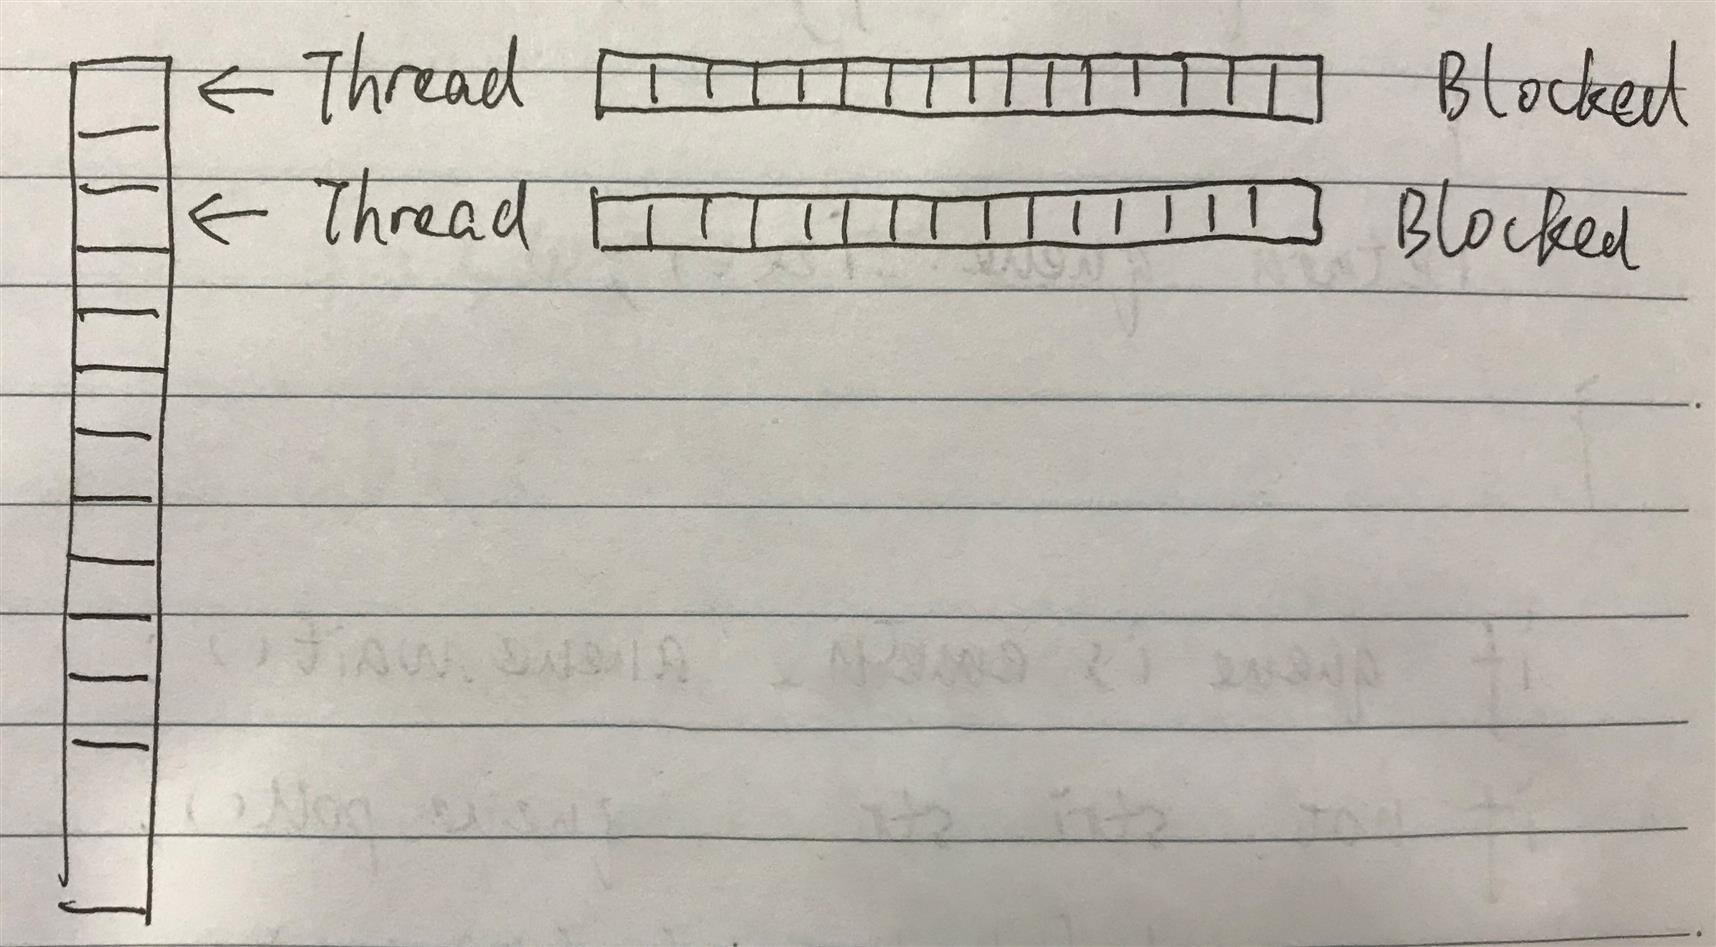 ← Thread Blocked
← Thread Blocked